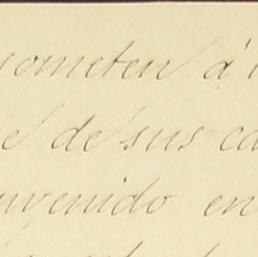 someten á
de sus ca
nvenido en